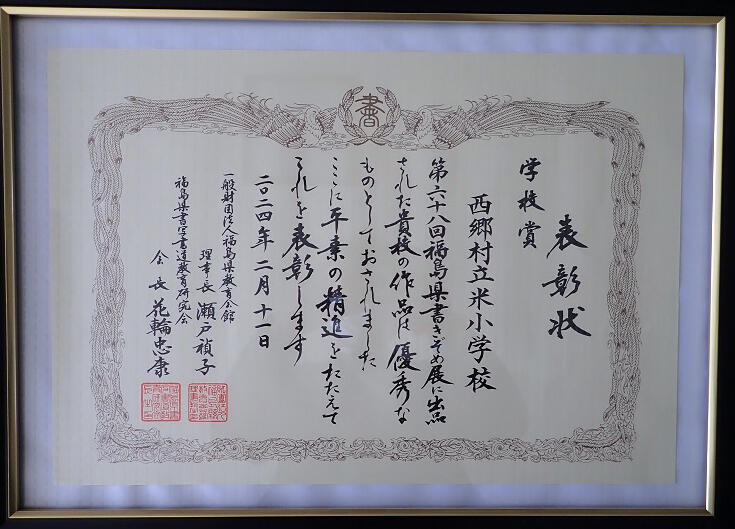 書
表彰状
学校賞
西郷村立米小学校
第六十八回福島県書きぞめ展に出品
された貴校の作品は優秀な
ものとしておされました
ここに平素の精進をたたえて
これを表彰します
二〇二四年二月十一日
一般財団法人福島県教育会館
理事長 瀬戸禎子
福島県書写書道教育研究会
会長 花輪忠康